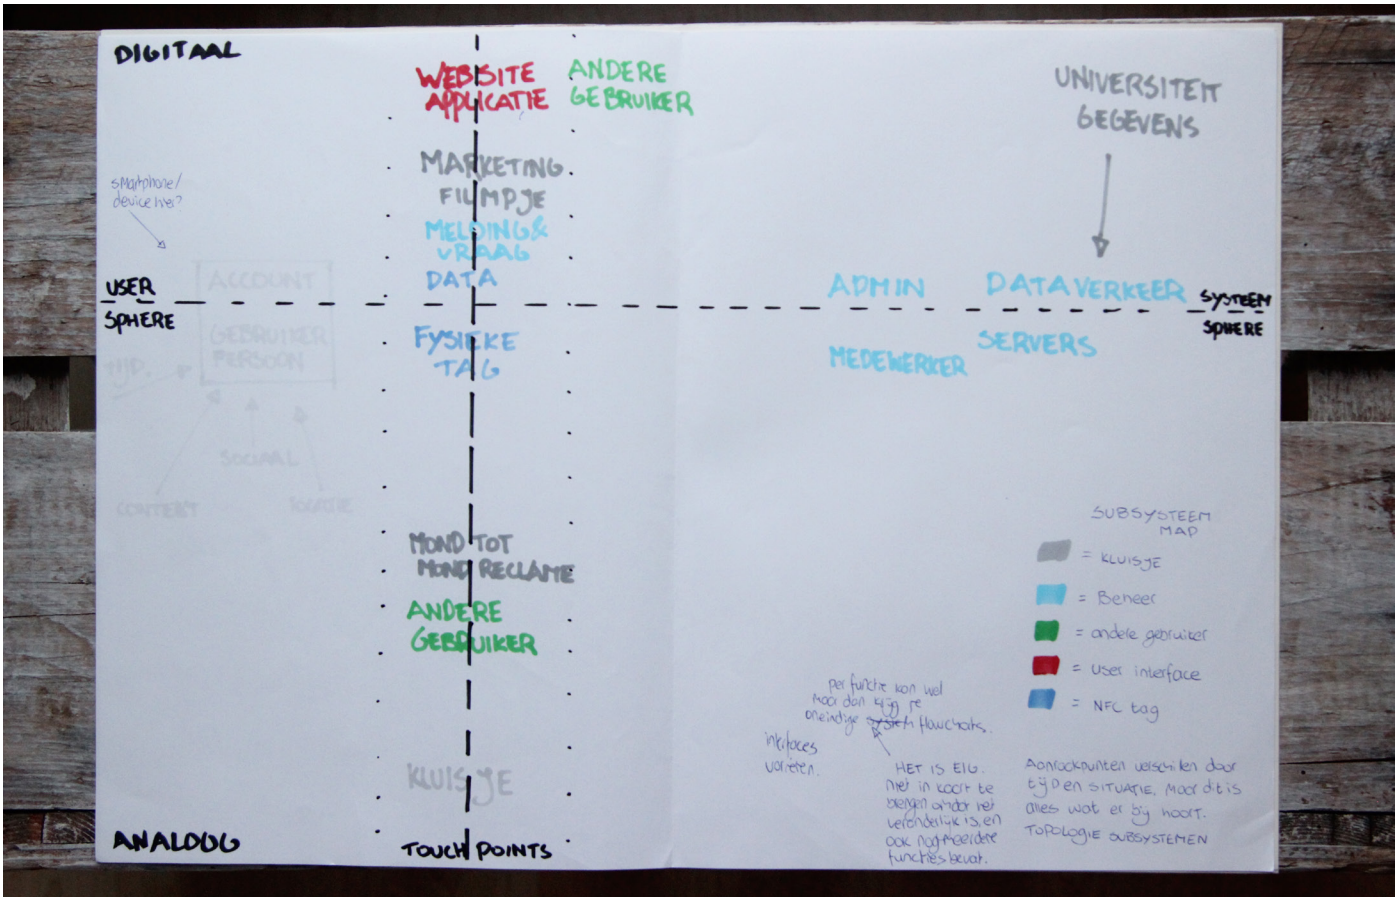 DIGITAAL
WEBSITE
APPLICATIE
ANDERE
GEBRUIKER
UNIVERSITEIT
GEGEVENS
MARKETING
FILMPJE
smartphone/
device hier?
MELDING&
VRAAG
DATA
USER
SPHERE
ACCOUNT
GEBRUIKER
PERSOON
TIJD.
SOCIAAL
CONTEXT
LOCATIE
ADMIN
DATAVERKEER
SYSTEEM
SPHERE
FYSIEKE
TAG
MEDEWERKER
SERVERS
MOND TOT
MOND RECLAME
ANDERE
GEBRUIKER
KLUISJE
SUBSYSTEEM
MAP
= KLUISJE
= Beheer
= andere gebruiker
= User interface
= NFC tag
per functie kan wel
maar dan krijg je
oneindige system flowcharts.
interfaces
variëren.
HET IS EIG.
niet in kaart te
brengen omdat het
veranderlijk is, en
ook nog meerdere
functies bevat.
Aanraakpunten verschillen door
TIJD EN SITUATIE, maar dit is
alles wat er bij hoort.
TOPOLOGIE SUBSYSTEMEN
ANALOOG
TOUCH POINTS